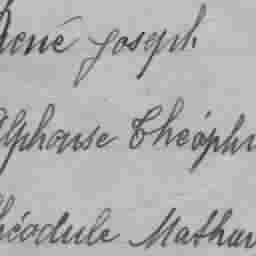 René Joseph
Alphonse Théophi
Théodule Mathur